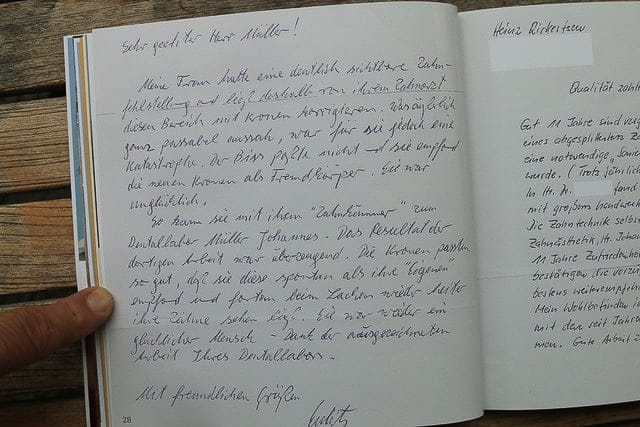 Sehr geehrter Herr Müller!
Meine Frau hatte eine deutlich sichtbare Zahn-
fehlstellung und ließ deshalb von ihrem Zahnarzt
diesen Bereich mit Kronen korrigieren. Was äußerlich
ganz passabel aussah, war für sie jedoch eine
Katastrophe. Der Biss paßte nicht und sie empfand
die neuen Kronen als Fremdkörper. Sie war
unglücklich.
So kam sie mit ihrem "Zahnkummer" zum
Dentallabor Müller Johannes. Das Resultat der
dortigen Arbeit war überzeugend. Die Kronen passten
so gut, daß sie diese spontan als ihre "Eigenen"
empfand und fortan beim Lachen wieder heiter
ihre Zähne sehen ließ. Sie war wieder ein
glücklicher Mensch - Dank der ausgezeichneten
Arbeit Ihres Dentallabors.
Mit freundlichen Grüßen
28
Heinz Rickertsen
Qualität zahlt
Seit 11 Jahre sind
eines abgesplitterten
eine notwendige
wurde. (Trotz jährlich
In Hr. A. fand
mit großem
Die Zahntechnik selbst
Zahnästhetik, Hr.
11 Jahre Zufriedenheit
bestätigen die
bestens
Mein Wohlbefinden
mit den seit Jahren
men. Gute Arbeit